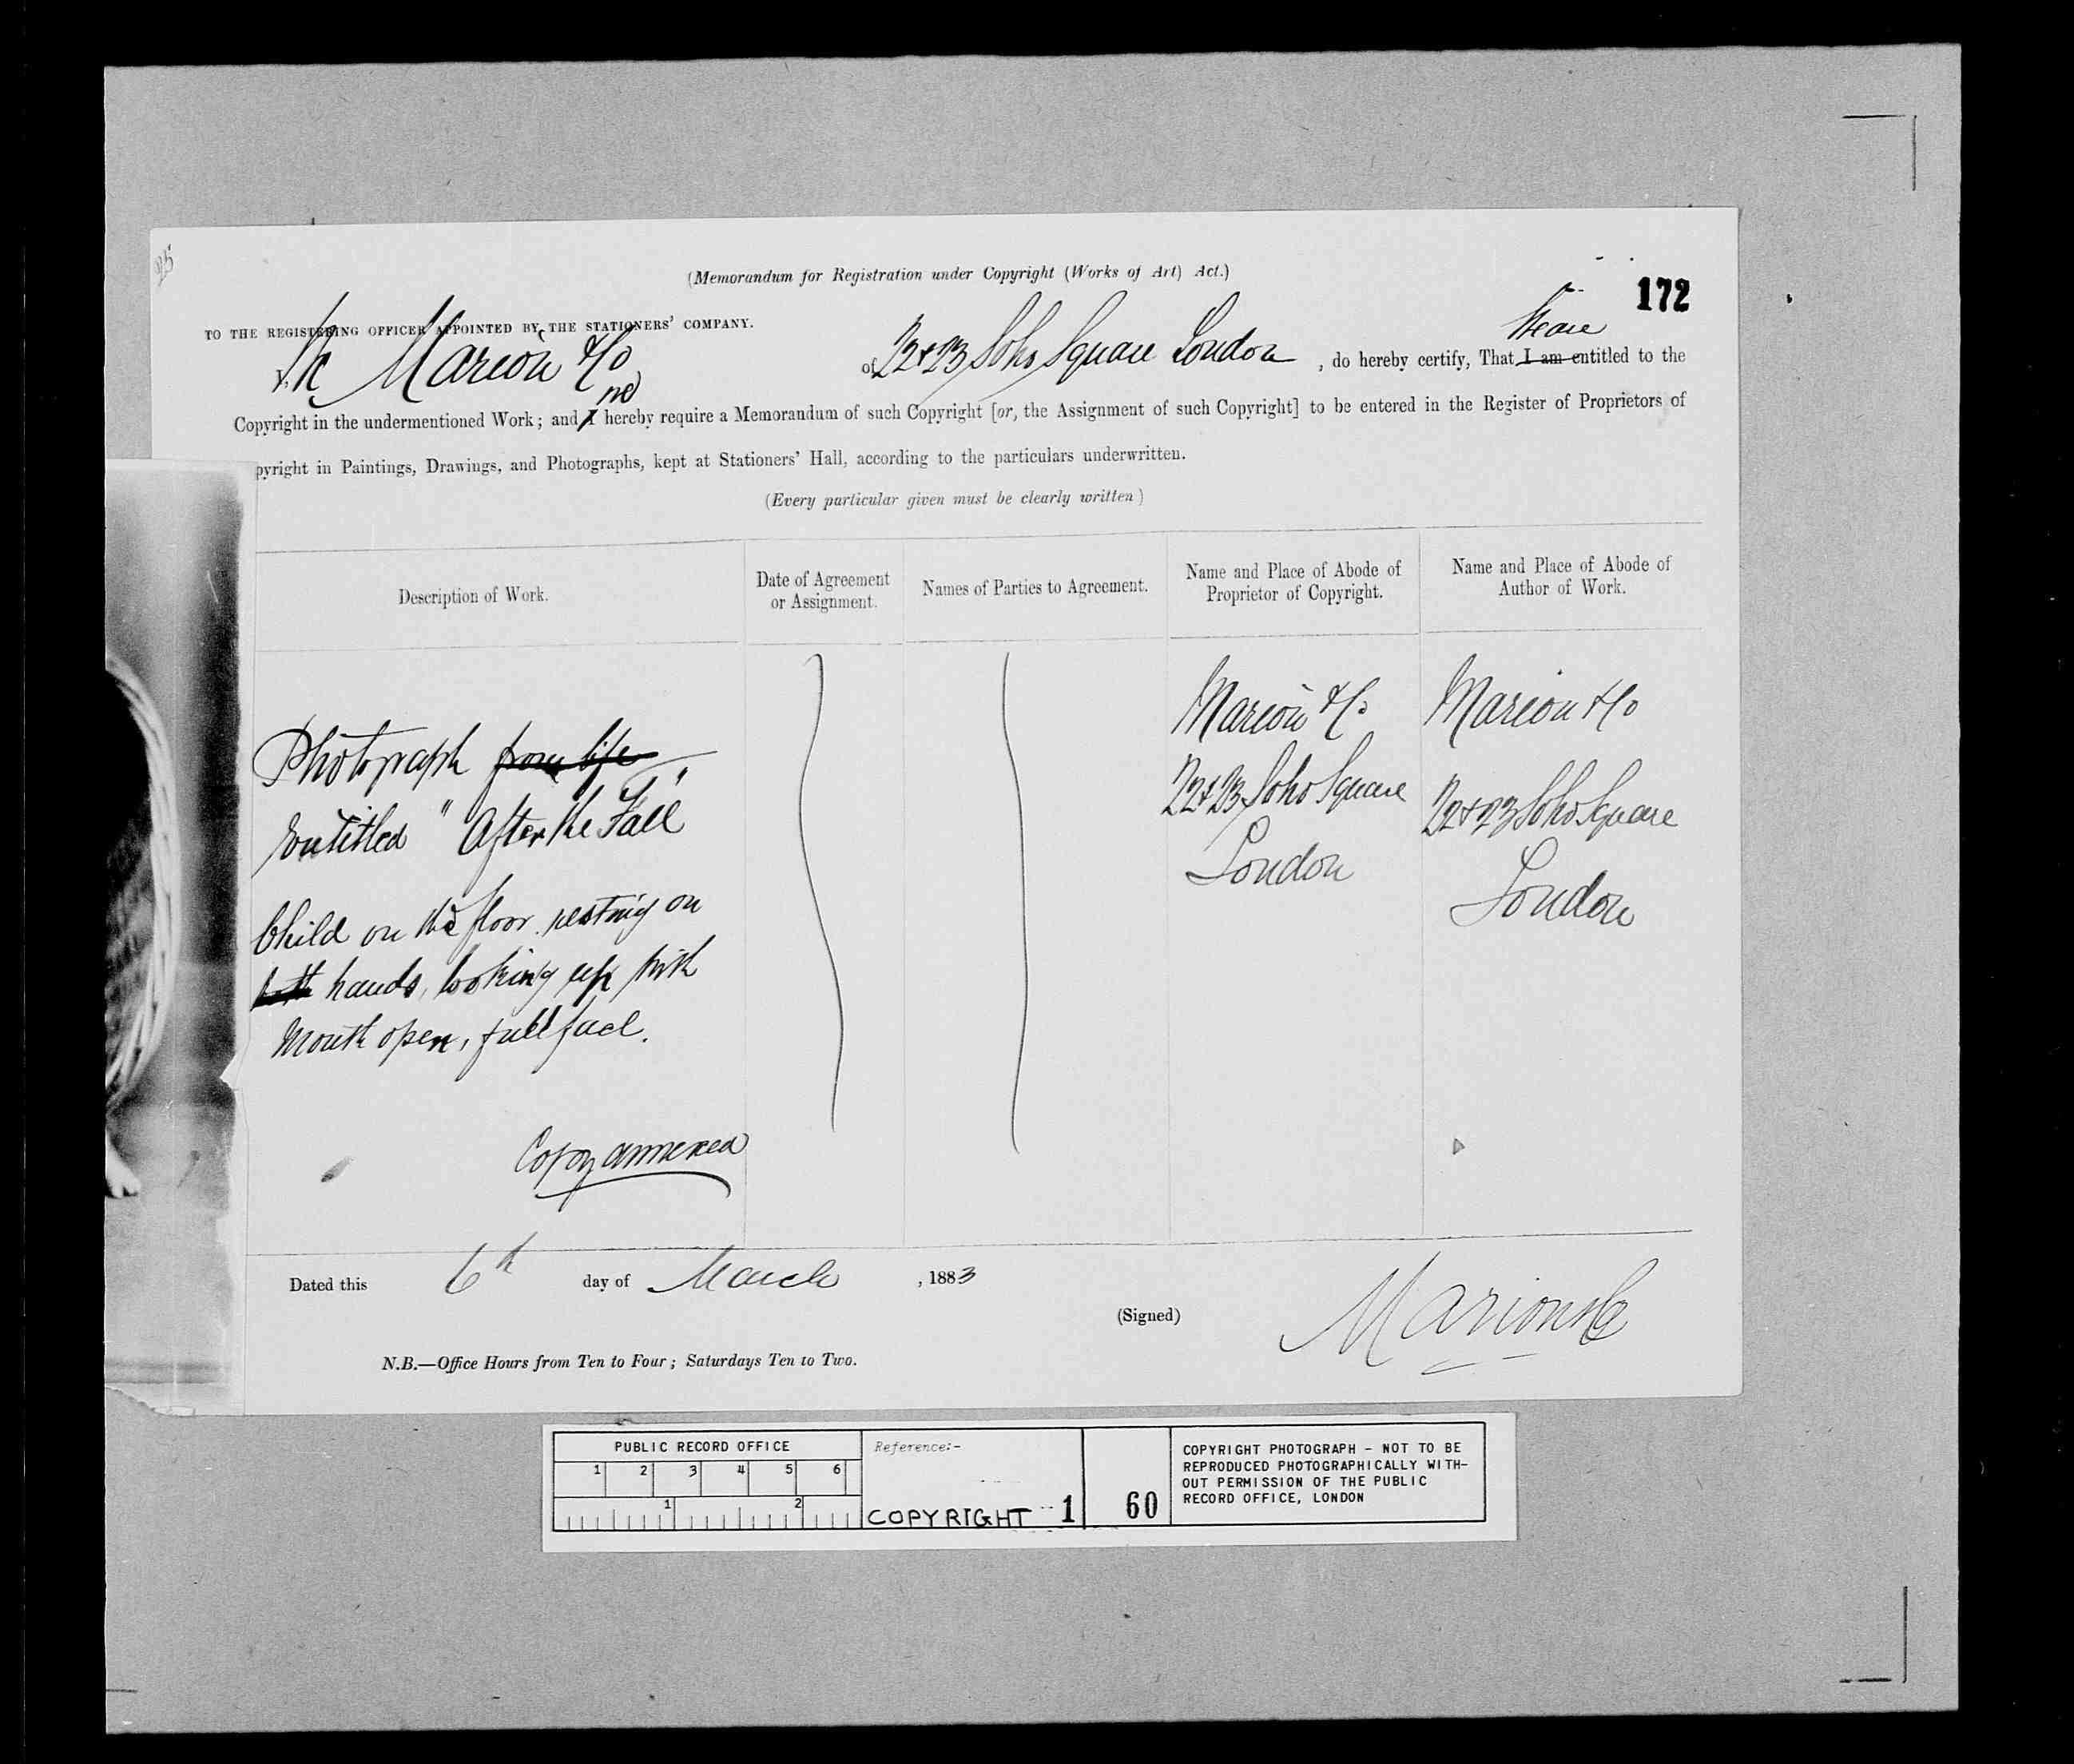 25
(Memorandum for Registration under Copyright (Works of Art) Act.)
172
TO THE REGISTERING OFFICER APPOINTED BY THE STATIONERS' COMPANY.
We are
We Marion & Co of 22 & 23 Soho Square London , do hereby certify, That I am entitled to the
we
Copyright in the undermentioned Work; and I hereby require a Memorandum of such Copyright [or, the Assignment of such Copyright] to be entered in the Register of Proprietors of
pyright in Paintings, Drawings, and Photographs, kept at Stationers' Hall, according to the particulars underwritten.
(Every particular given must be clearly written)
Description of Work.
Date of Agreement
or Assignment.
Names of Parties to Agreement.
Name and Place of Abode of
Proprietor of Copyright.
Name and Place of Abode of
Author of Work.
Photograph from life
Entitled "After the Fall"
Child on the floor resting on
both hands, looking up with
mouth open, full face.
Copy annexed
Marion & Co
22 & 23 Soho Square
London
Marion & Co
22 & 23 Soho Square
London
Dated this 6th day of March , 1883
(Signed) Marion & Co
N.B.—Office Hours from Ten to Four; Saturdays Ten to Two.
PUBLIC RECORD OFFICE
1 2 3 4 5 6
1 2
Reference:-
COPYRIGHT 1
60
COPYRIGHT PHOTOGRAPH - NOT TO BE
REPRODUCED PHOTOGRAPHICALLY WITH-
OUT PERMISSION OF THE PUBLIC
RECORD OFFICE, LONDON